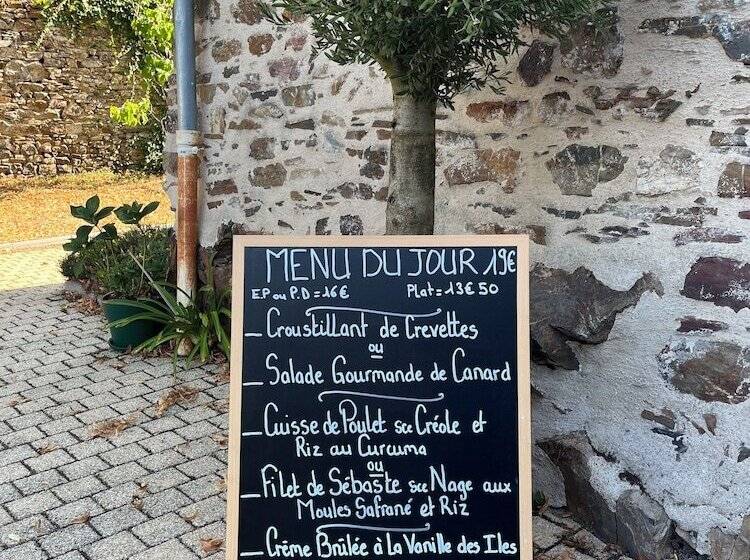 MENU DU JOUR 19€
E.P ou P.D = 16€ Plat = 13€50
_ Croustillant de Crevettes
ou
_ Salade Gourmande de Canard
_ Cuisse de Poulet sce Créole et
Riz au Curcuma
ou
_ Filet de Sébaste sce Nage aux
Moules Safrané et Riz
_ Crème Brûlée à La Vanille des Iles